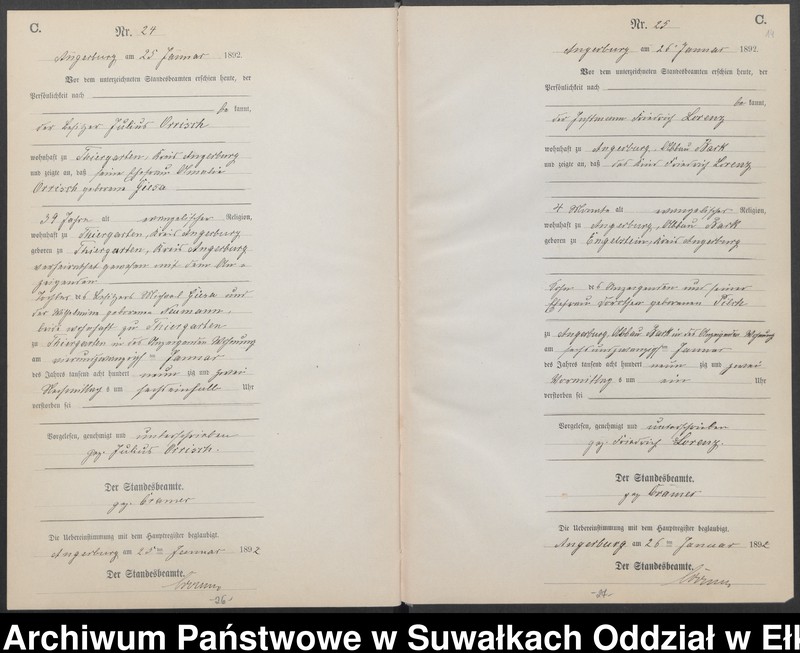 C.
Nr. 24
Angerburg am 25 Januar 1892.
Vor dem unterzeichneten Standesbeamten erschien heute, der
Persönlichkeit nach
be kannt,
der Besitzer Julius Orrisch
wohnhaft zu Thiergarten, Kreis Angerburg
und zeigte an, daß seine Ehefrau Amalie
Orrisch geborene Giesa
39 Jahre alt evangelischer Religion,
wohnhaft zu Thiergarten, Kreis Angerburg
geboren zu Thiergarten, Kreis Angerburg
verheirathet gewesen mit dem An-
zeigenden
Tochter des Besitzers Michael Giesa und
der Wilhelmine geborene Neumann,
beide wohnhaft zu Thiergarten
zu Thiergarten in des Anzeigenden Wohnung
am vierundzwanzigsten Januar
des Jahres tausend acht hundert neunzig und zwei
Nachmittag s um sechseinhalb Uhr
verstorben sei
Vorgelesen, genehmigt und unterschrieben
gez. Julius Orrisch.
Der Standesbeamte.
gez. Cramer
Die Uebereinstimmung mit dem Hauptregister beglaubigt.
Angerburg am 25ten Januar 1892
Der Standesbeamte.
-26-
C.
Nr. 25
Angerburg am 26 Januar 1892.
Vor dem unterzeichneten Standesbeamten erschien heute, der
Persönlichkeit nach
be kannt,
der Instmann Friedrich Lorenz
wohnhaft zu Angerburg, Abbau Bark
und zeigte an, daß das Kind Friedrich Lorenz
4 Monate alt evangelischer Religion,
wohnhaft zu Angerburg, Abbau Bark
geboren zu Engelstein, Kreis Angerburg
Sohn des Anzeigenden und seiner
Ehefrau Dorothea geborenen Pilch
zu Angerburg, Abbau Bark in des Anzeigenden Wohnung
am sechsundzwanzigsten Januar
des Jahres tausend acht hundert neunzig und zwei
Vormittag s um ein Uhr
verstorben sei
Vorgelesen, genehmigt und unterschrieben
gez. Friedrich Lorenz.
Der Standesbeamte.
gez. Cramer
Die Uebereinstimmung mit dem Hauptregister beglaubigt.
Angerburg am 26ten Januar 1892
Der Standesbeamte.
Archiwum Państwowe w Suwałkach Oddział w Ełk